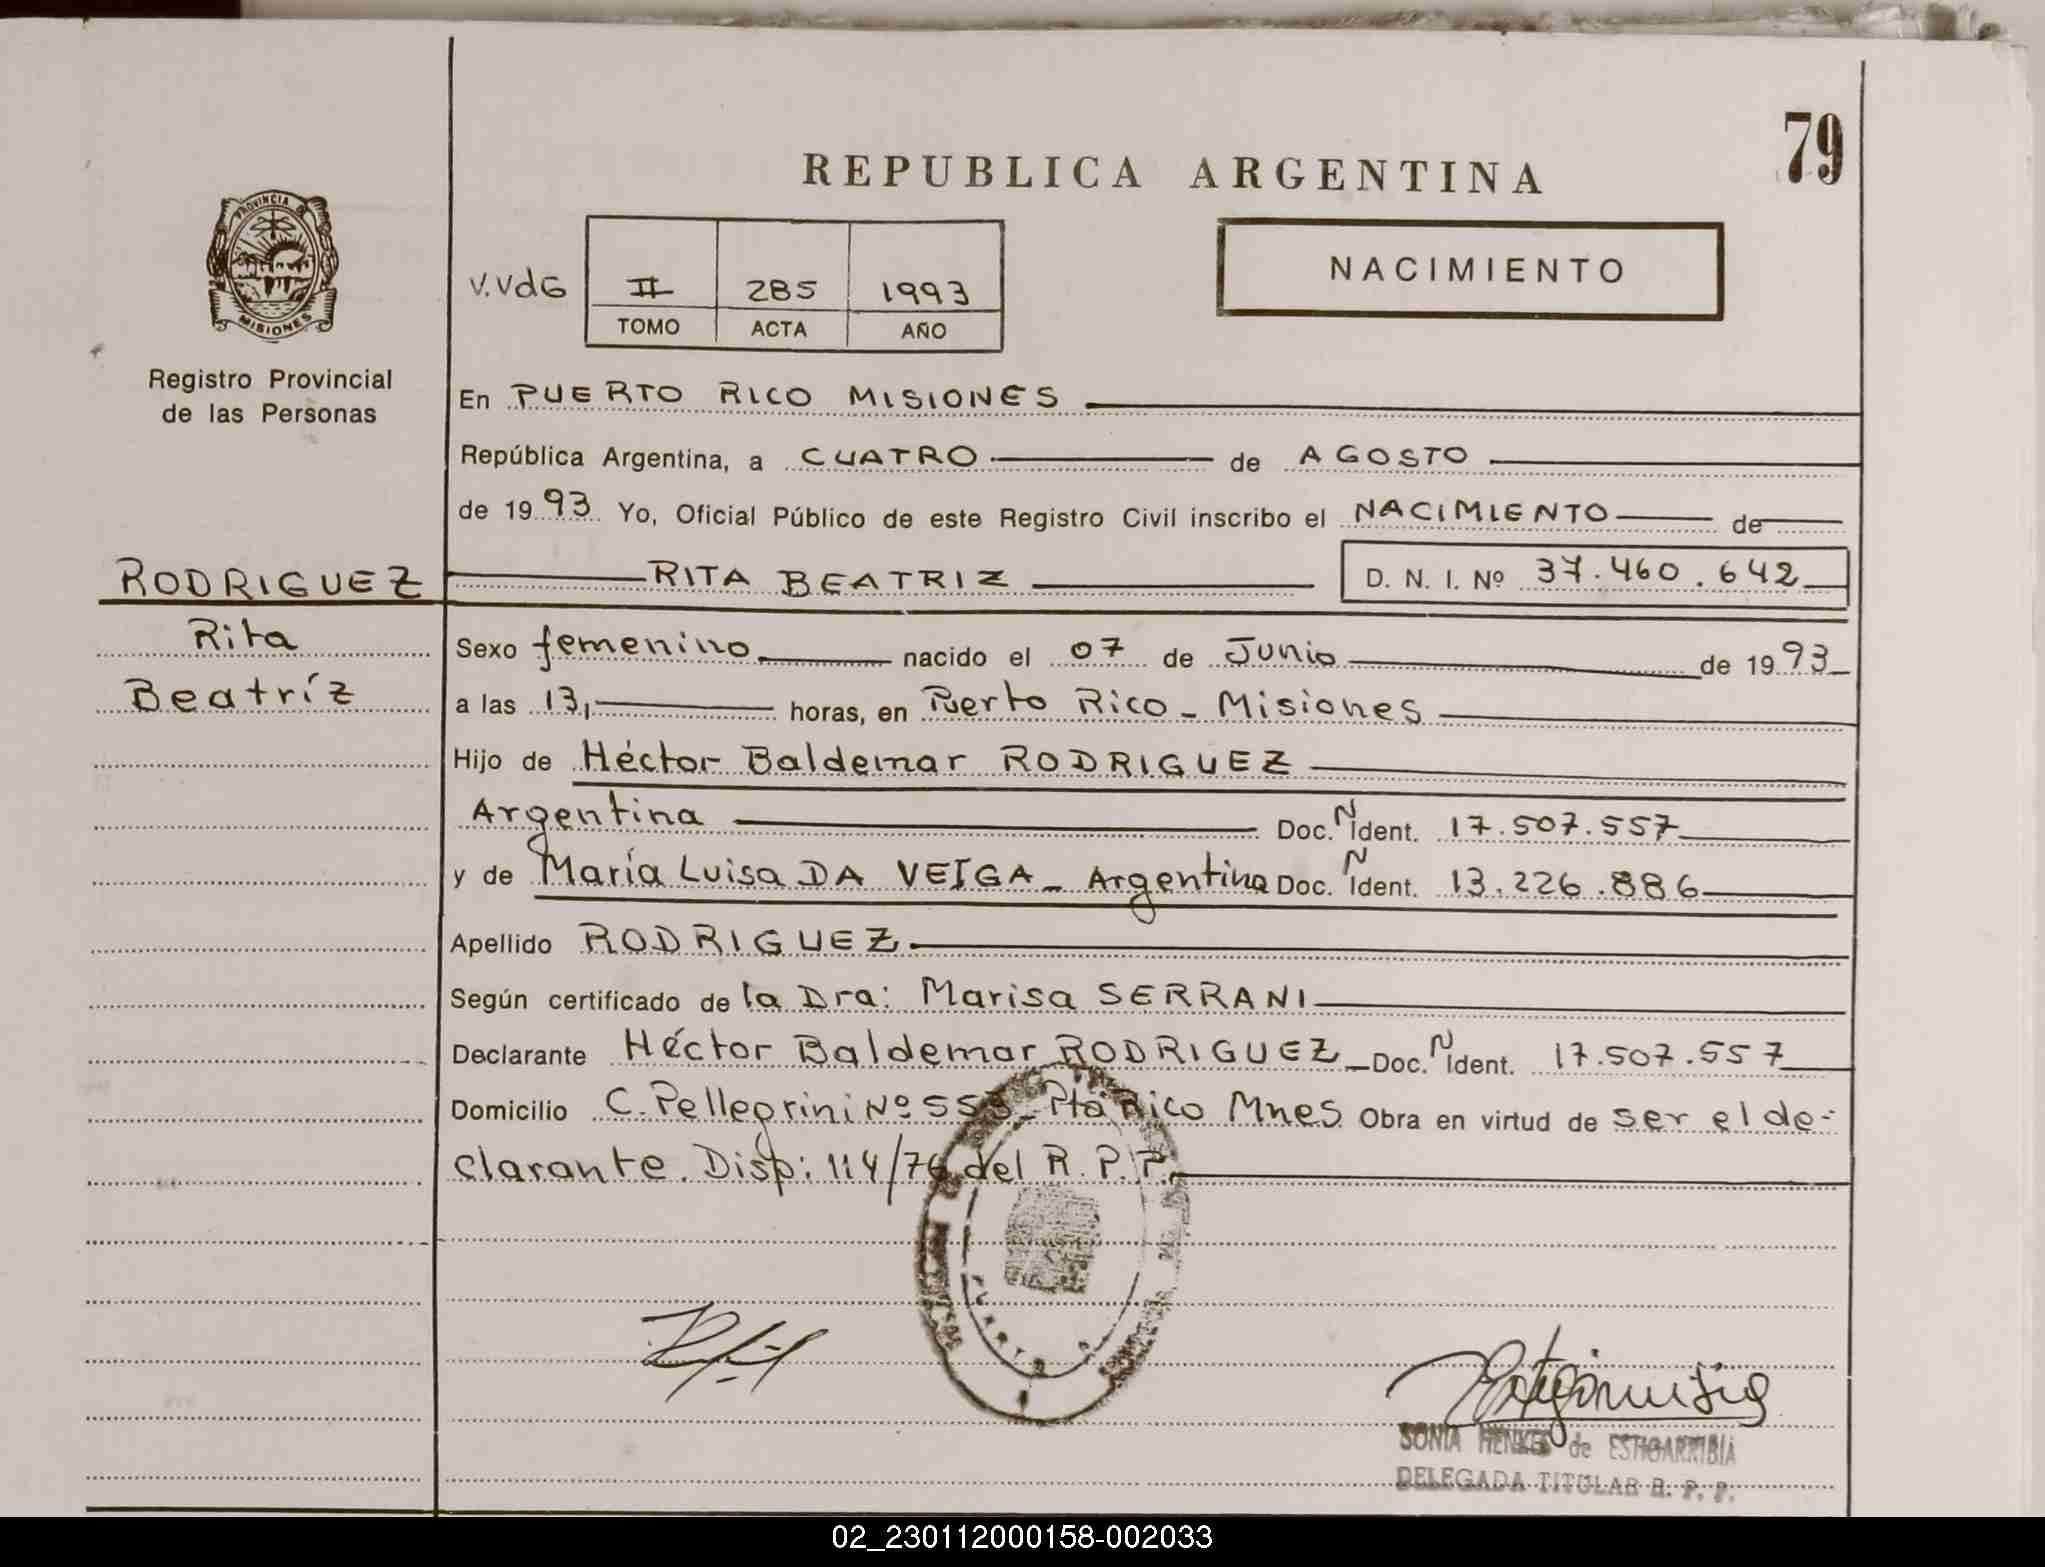 79
REPUBLICA ARGENTINA
PROVINCIA D
MISIONES
Registro Provincial
de las Personas
V.VdG
II 285 1993
TOMO ACTA AÑO
NACIMIENTO
En PUERTO RICO MISIONES
República Argentina, a CUATRO de AGOSTO
de 1993 Yo, Oficial Público de este Registro Civil inscribo el NACIMIENTO de
RODRIGUEZ RITA BEATRIZ D. N. I. Nº 37.460.642
Rita
Beatríz
Sexo femenino nacido el 07 de Junio de 1993
a las 13, horas, en Puerto Rico - Misiones
Hijo de Héctor Baldemar RODRIGUEZ
Argentina Doc. N Ident. 17.507.557
y de María Luisa DA VEIGA - Argentina Doc. N Ident. 13.226.886
Apellido RODRIGUEZ
Según certificado de la Dra: Marisa SERRANI
Declarante Héctor Baldemar RODRIGUEZ Doc. N Ident. 17.507.557
Domicilio C. Pellegrini Nº 555 - Pto Rico Mnes Obra en virtud de ser el de-
clarante. Disp: 114/76 del R.P.P.
SONIA HENKES de ESTIGARRIBIA
DELEGADA TITULAR R. P. P.
02_230112000158-002033